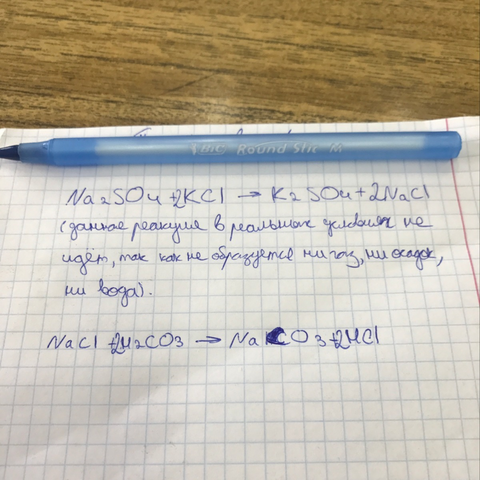 BIC Round Stic M
Na2SO4 + 2KCl → K2SO4 + 2NaCl
(данная реакция в реальных условиях не
идёт, так как не образуется ни газ, ни осадок,
ни вода).
NaCl + 2H2CO3 → NaCO3 + 2HCl